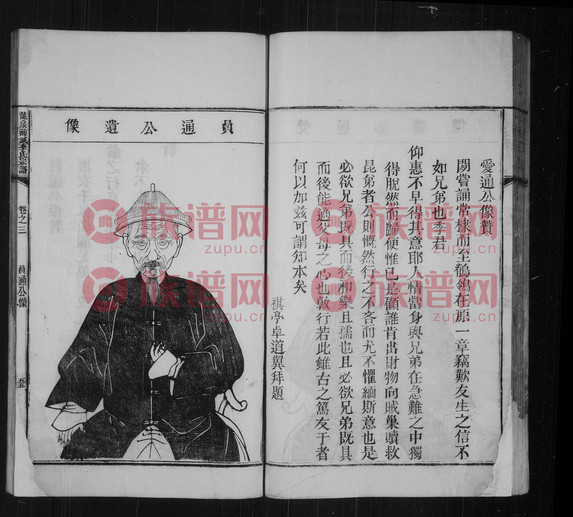 愛通公像贊
閱嘗誦常棣而至鶺鴒在原一章竊歎友生之信不
如兄弟也季君
仰惠不早得其意耶人情當身與兄弟在急難之中獨
得脫然而歸便惟已必顧誰肯出財物向賊巢贖救
昆弟者公則慨然行之不吝而尤不懼緬斯意也是
必欲兄弟既具而後和樂且孺也且必欲兄弟既具
而後能適父母之心也敦行若此雖古之篤友于者
何以加茲可謂知本矣
祺亭卓道翼拜題
貞通公遺像
卷之三
貞通公像
族谱网
zupu.cn
族谱网
zupu.cn
族谱网
zupu.cn
族谱网
zupu.cn